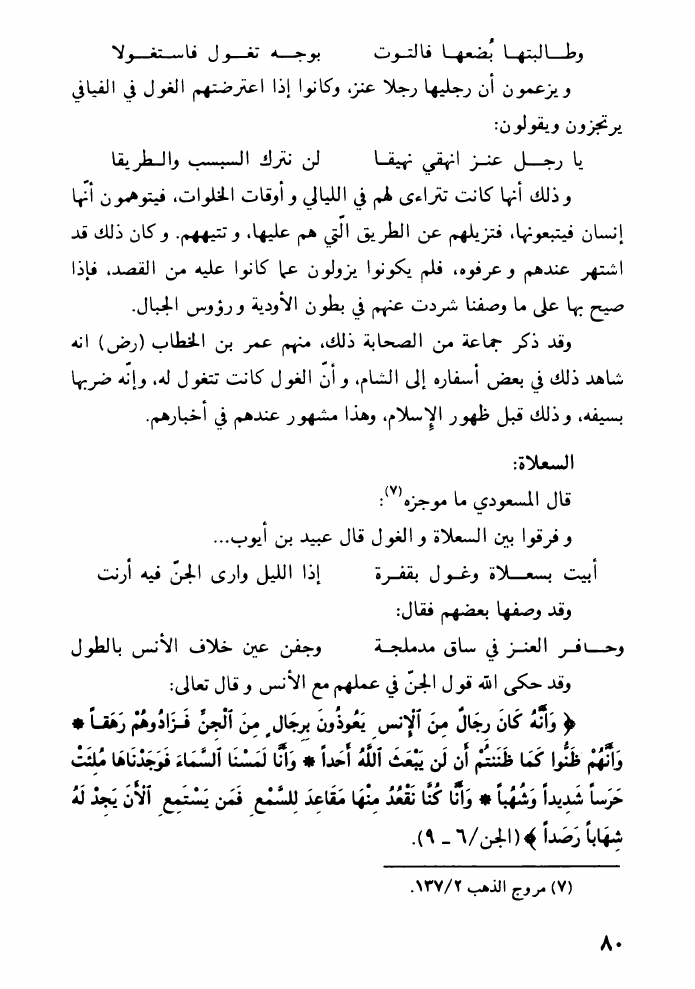 وطـالبتهـا بُضعهـا فالتـوت بوجـه تغـول فاستغـولا
ويزعمون أن رجليها رجلا عنز، وكانوا إذا اعترضتهم الغول في الفيافي
يرتجزون ويقولون:
يا رجـل عنـز انهقي نهيقـا لن نترك السبسب والـطريقا
وذلك أنها كانت تتراءى لهم في الليالي وأوقات الخلوات، فيتوهمون أنّها
إنسان فيتبعونها، فتزيلهم عن الطريق الّتي هم عليها، وتتيههم. وكان ذلك قد
اشتهر عندهم وعرفوه، فلم يكونوا يزولون عما كانوا عليه من القصد، فإذا
صيح بها على ما وصفنا شردت عنهم في بطون الأودية ورؤوس الجبال.
وقد ذكر جماعة من الصحابة ذلك، منهم عمر بن الخطاب (رض) انه
شاهد ذلك في بعض أسفاره إلى الشام، وأنّ الغول كانت تتغول له، وإنّه ضربها
بسيفه، وذلك قبل ظهور الإسلام، وهذا مشهور عندهم في أخبارهم.
السعلاة:
قال المسعودي ما موجزه(٧):
وفرقوا بين السعلاة والغول قال عبيد بن أيوب...
أبيت بسعـلاة وغـول بقفـرة إذا الليل وارى الجنّ فيه أرنت
وقد وصفها بعضهم فقال:
وحـافـر العنـز في ساق مدملجـة وجفن عين خلاف الأنس بالطول
وقد حكى الله قول الجنّ في عملهم مع الأنس وقال تعالى:
﴿ وَأَنَّهُ كَانَ رِجَالٌ مِنَ ٱلْإِنسِ يَعُوذُونَ بِرِجَالٍ مِنَ ٱلْجِنِّ فَـزَادُوهُمْ رَهَقـاً *
وَأَنَّهُمْ ظَنُّوا كَمَا ظَنَنتُمْ أَن لَن يَبْعَثَ ٱللَّهُ أَحَداً * وَأَنَّا لَمَسْنَا ٱلسَّمَاءَ فَوَجَدْنَاهَا مُلِئَتْ
حَرَساً شَدِيداً وَشُهُباً * وَأَنَّا كُنَّا نَقْعُدُ مِنْهَا مَقَاعِدَ لِلسَّمْعِ فَمَن يَسْتَمِعِ ٱلْأَنَ يَجِدْ لَهُ
شِهَاباً رَصَداً ﴾ (الجن/٦ ـ ٩).
(٧) مروج الذهب ١٣٧/٢.
٨٠